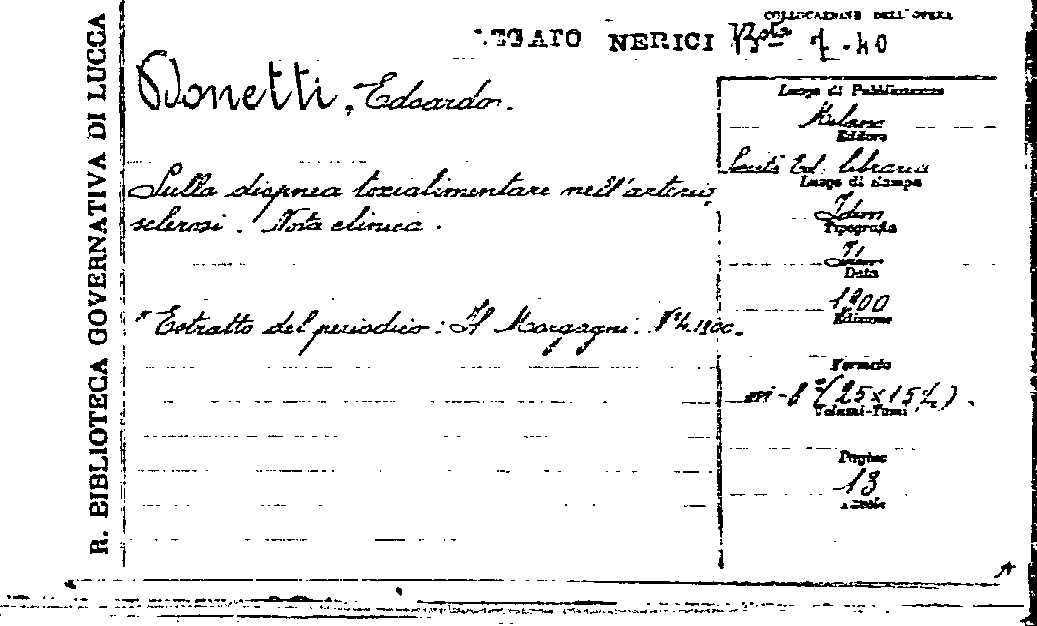 R. BIBLIOTECA GOVERNATIVA DI LUCCA
COLLOCAZIONE DELL'OPERA
LEGATO NERICI Bsta 7-40
Donetti, Edoardo.
Luogo di Pubblicazione
Milano
Editore
Società Ed. libraria
Sulla dispnea tossialimentare nell'arterio,
sclerosi. Nota clinica.
Luogo di stampa
Idem
Tipografia
Data
1900
Edizione
"Estratto del periodico: Il Morgagni. N°4.1900.
Formato
in-8°(25x15,4).
Volumi-Tomi
Pagine
13